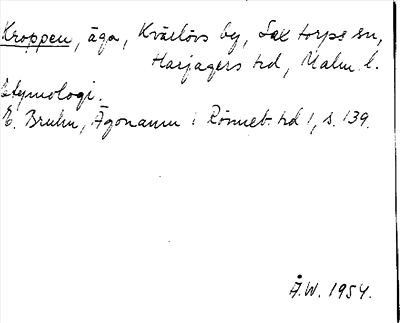 Kroppen, äga, Kvärlövs by, Sax torps sn,
Harjagers hd, Malm. l.
Etymologi.
E. Bruhn, Ägonamn i Rönneb. hd 1, s. 139.
Å.W. 1954.